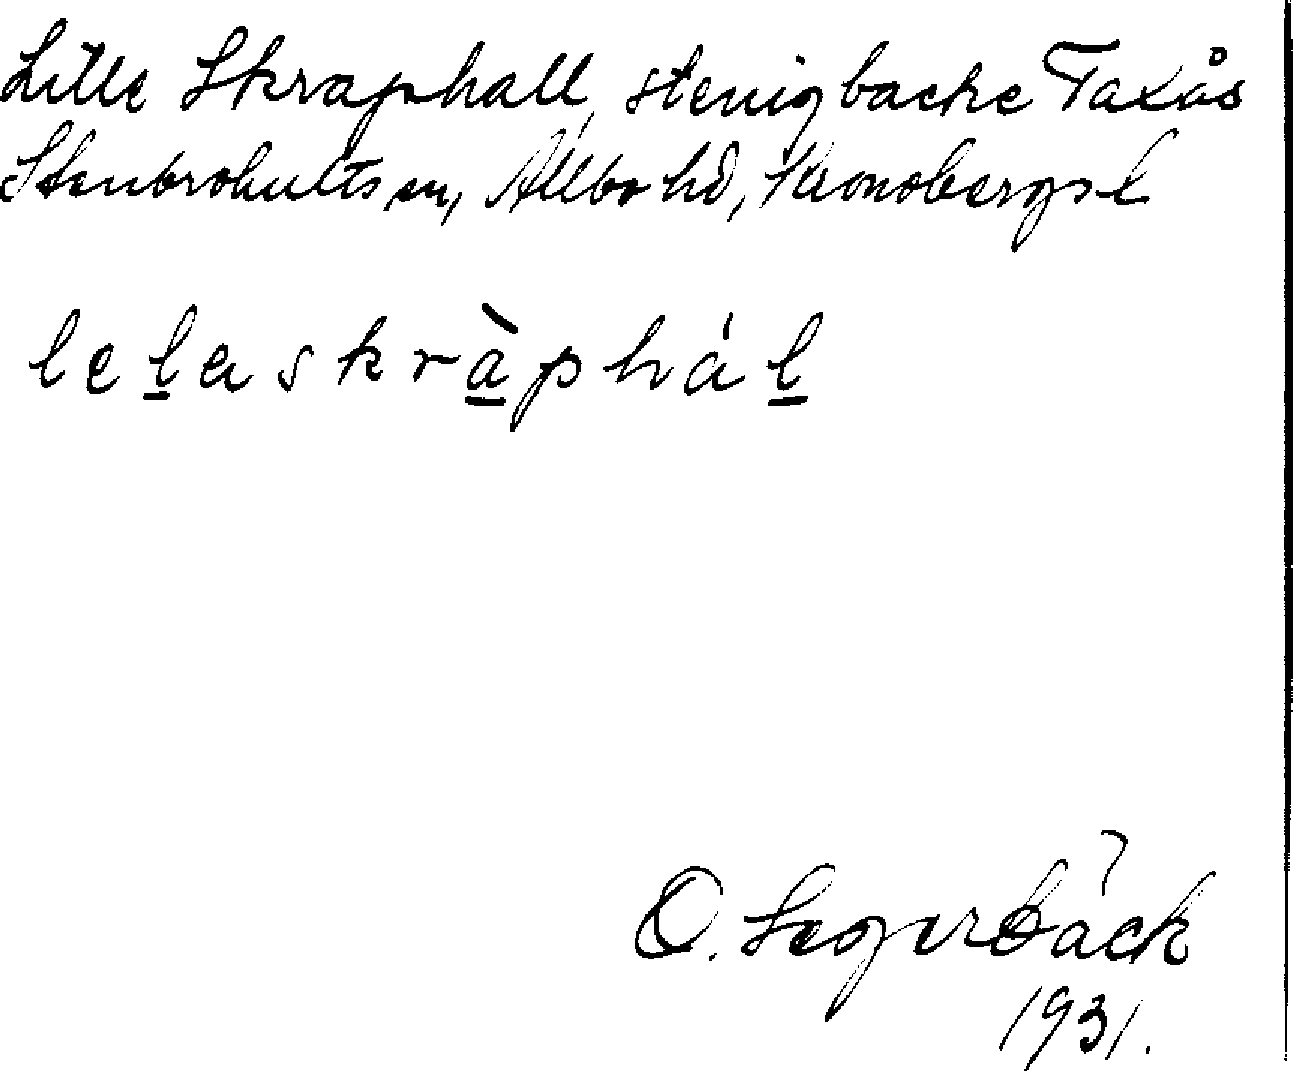 Lille Skraphall, stenig backe Taxås
Stenbrohults sn, Allbo hd, Kronobergs l
lelaskràphál
O. Segerbäck
1931.